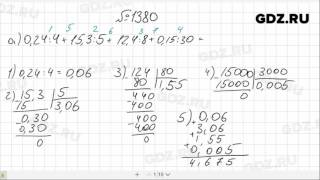 №1380
GDZ.RU
1 5 2 6 3 7 4
а) 0,24:4 + 15,3:5 + 12,4:8 + 0,15:30 =
1) 0,24:4 = 0,06
2) 15,3 | 5
15 | 3,06
-0,30
0,30
0
3) 124 | 80
80 | 1,55
440
400
-400
400
0
4) 15000 | 3000
15000 | 0,005
0
5) 0,06
+ 3,06
1,55
0,005
4,675
GDZ.RU